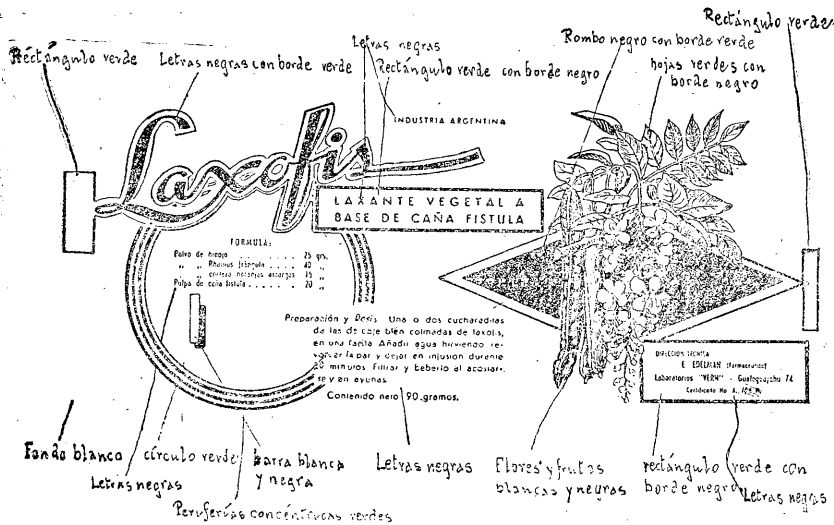 Rectángulo verde
Letras negras con borde verde
Letras negras
Rectángulo verde con borde negro
Rombo negro con borde verde
Rectángulo verde
hojas verdes con
borde negro
INDUSTRIA ARGENTINA
Laxofis
LAXANTE VEGETAL A
BASE DE CAÑA FISTULA
FORMULA:
Polvo de hinojo . . . . . 25 grs.
„ „ Rhamus frángula . . . . 40 „
„ „ naranjas amargas 15 „
Pulpa de caña fistula . . . . . . 20 „
Preparación y Dosis Una o dos cucharaditas
de las de café bién colmadas de laxofis,
en una tacita Añadir agua hirviendo re-
volver tapar y dejar en infusion durante
20 minutos Filtrar y beberlo al acostar-
se y en ayunas
Contenido neto 90 gramos.
DIRECCION TECNICA
E. EDELMAN (farmaceutico)
Laboratorios "VERH" - Gualeguaychu 74
Certificado No
Fondo blanco
círculo verde
barra blanca
y negra
Letras negras
Letras negras
Periferías concéntricas verdes
Flores y frutos
blancas y negras
rectángulo verde con
borde negro
Letras negras